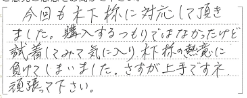 今回も木下様に対応して頂き
ました。購入するつもりではなかったけど
試着してみて気に入り木下様の熱意に
負けてしまいました。さすが上手ですネ
頑張って下さい。